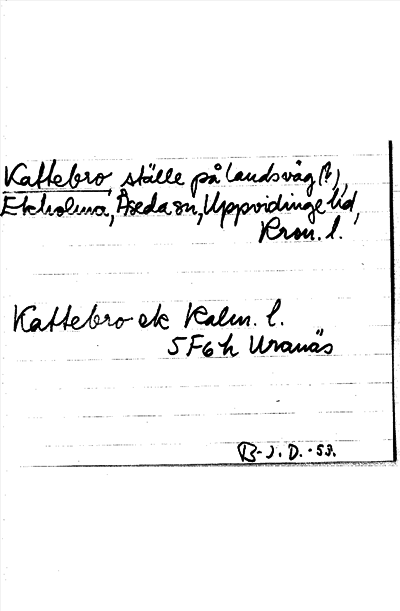 Kattebro, ställe på landsväg (?),
Ekholma, Åseda sn, Uppvidinge hd,
Kron. l.
Kattebro ek Kalm. l.
5F6h Uranäs
B-J. D. -53.